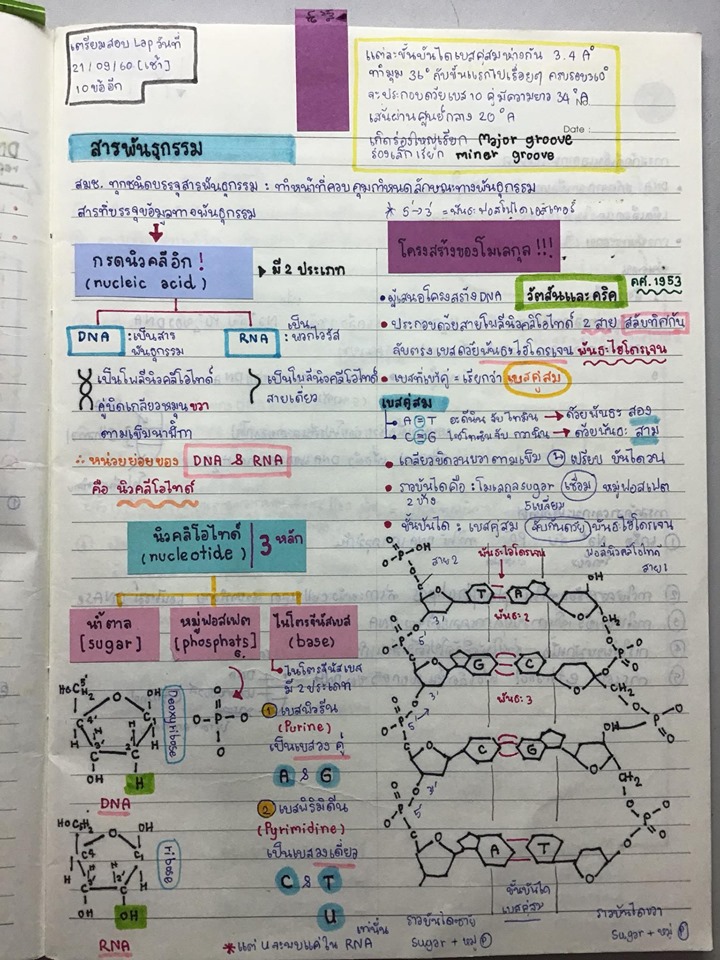 เตรียมสอบ Lap วันที่
21/09/60 [เช้า]
10 ข้อฮึก
แต่ละขั้นบันไดเบสคู่สมห่างกัน 3.4 A°
ทำมุม 36° กับขั้นแรกไปเรื่อยๆ ครบรอบ360°
จะประกอบด้วยเบส 10 คู่ มีความยาว 34°A
เส้นผ่านศูนย์กลาง 20°A
เกิดร่องใหญ่เรียก Major groove
ร่องเล็ก เรียก miner groove
Date :
สารพันธุกรรม
สมช. ทุกชนิดบรรจุสารพันธุกรรม : ทำหน้าที่ควบคุมกำหนดลักษณะทางพันธุกรรม
สารที่บรรจุข้อมูลทางพันธุกรรม
* 5'→3' = พันธะฟอสโฟไดเอสเทอร์
กรดนิวคลีอิก !
(nucleic acid)
▸ มี 2 ประเภท
DNA : เป็นสารพันธุกรรม
RNA : เป็นพวกไวรัส
เป็นโพลีนิวคลีโอไทด์
คู่บิดเกลียวหมุนขวา
ตามเข็มนาฬิกา
เป็นโพลีนิวคลีโอไทด์
สายเดี่ยว
∴ หน่วยย่อยของ DNA & RNA
คือ นิวคลีโอไทด์
โครงสร้างของโมเลกุล !!!
• ผู้เสนอโครงสร้าง DNA วัตสันและคริค คศ. 1953
• ประกอบด้วยสายโพลีนิวคลีโอไทด์ 2 สาย สลับทิศกัน
จับตรงเบสด้วยพันธะไฮโดรเจน พันธะไฮโดรเจน
• เบสที่เข้าคู่ = เรียกว่า เบสคู่สม
เบสคู่สม
A=T อะดีนีน จับ ไทมีน → ด้วยพันธะ สอง
C≡G ไซโทซีน จับ กวานีน → ด้วยพันธะ สาม
• เกลียวบิดวนขวาตามเข็ม เปรียบ บันไดวน
• ราวบันไดคือ : โมเลกุลsugar เชื่อม หมู่ฟอสเฟต
2 ข้าง 5เหลี่ยม
• ขั้นบันได : เบสคู่สม จับกันด้วย พันธะไฮโดรเจน
นิวคลีโอไทด์
(nucleotide)
3 หลัก
น้ำตาล
[sugar]
หมู่ฟอสเฟต
[phosphats]
ไนโตรจีนัสเบส
(base)
ไนโตรจีนัสเบส
มี 2 ประเภท
1 เบสพิวรีน
(Purine)
เป็นเบสวง คู่
A & G
2 เบสพิริมิดีน
(Pyrimidine)
เป็นเบสวงเดี่ยว
C & T
U
* แต่ U จะพบแค่ใน RNA เท่านั้น
Deoxyribose
DNA
ribose
RNA
สาย 2
พันธะไฮโดรเจน
พอลินิวคลีโอไทด์
สาย 1
T A
พันธะ 2
G C
พันธะ 3
C G
A T
ขั้นบันได
เบสคู่สม
ราวบันไดซ้าย
Sugar + หมู่ P
ราวบันไดขวา
Sugar + หมู่ P